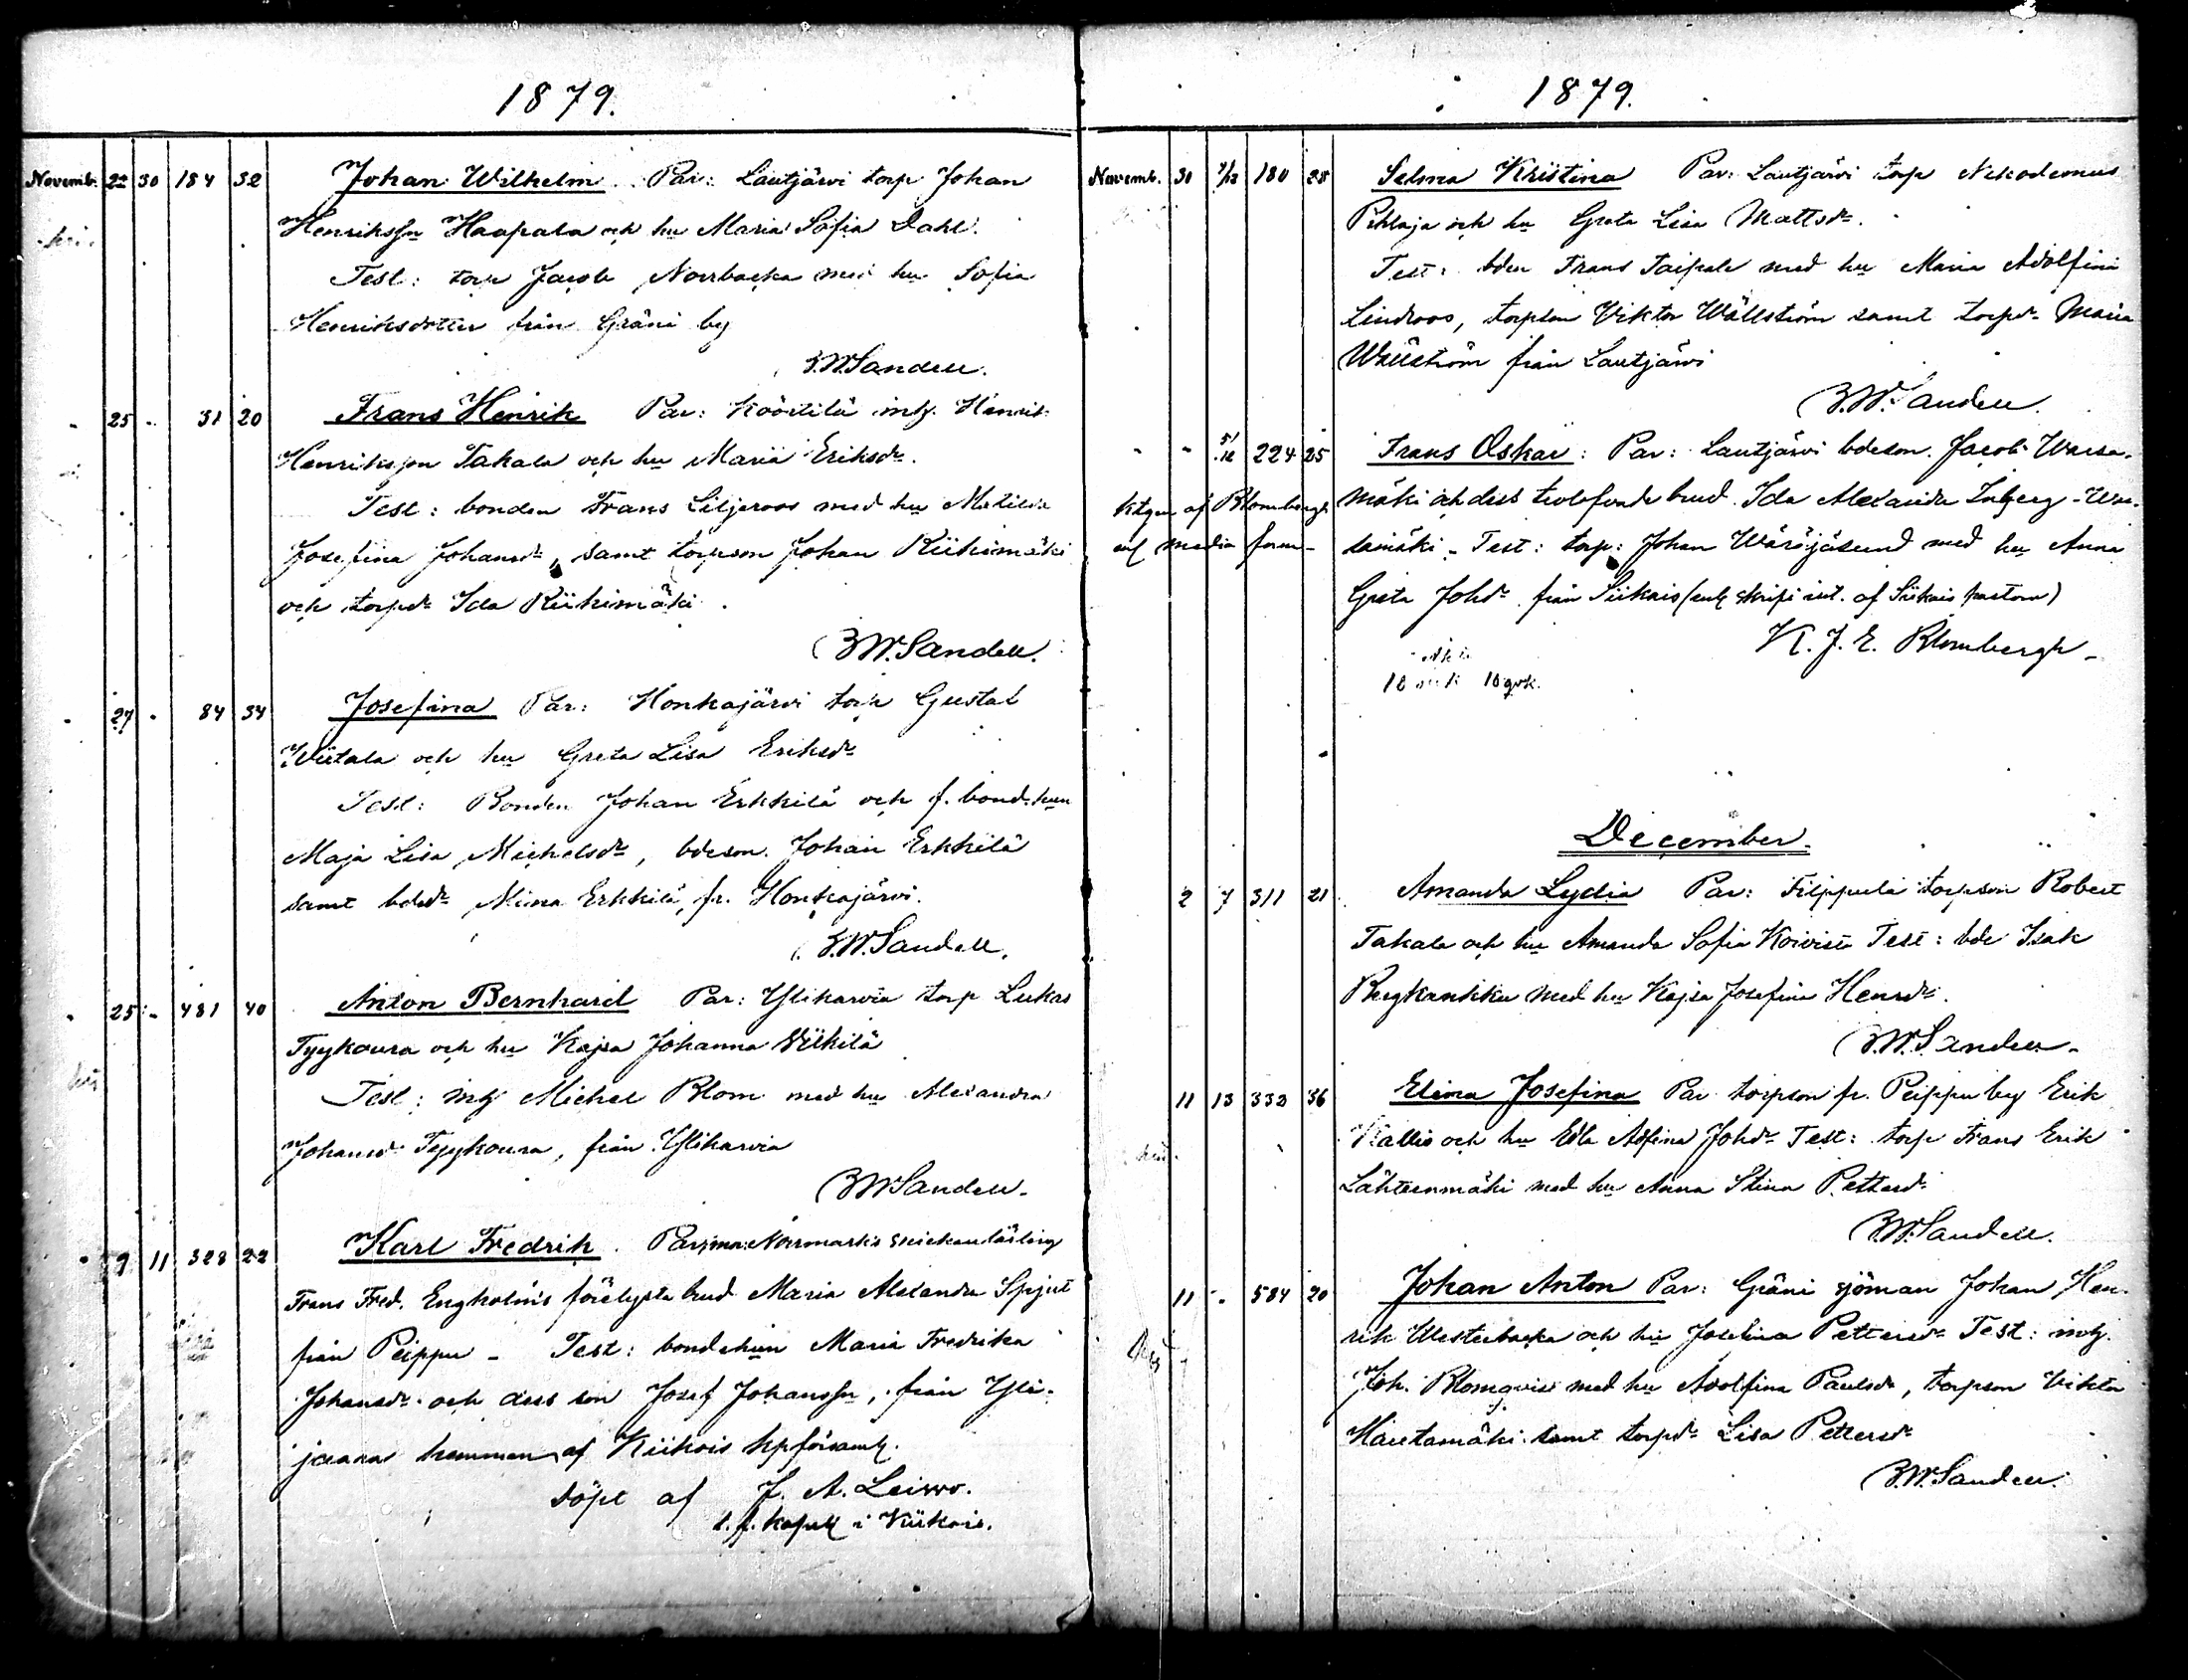 1879.
Novemb. 22 30 184 32 Johan Wilhelm Par: Lautjärvi torp Johan
Henrikssn Haapala och hu Maria Sofia Dahl.
Test: torp Jacob Norrbacka med hu Sofia
Henriksdotter från Gräni by
F.W.Sandell.
" 25 " 31 20 Frans Henrik Par: Köörtilä inhs. Henrik
Henriksson Takala och hu Maria Eriksdr.
Test: bonden Frans Liljeroos med hu Matilda
Josefina Johansdr, samt torpson Johan Riihimäki
och torpdr Ida Riihimäki.
F.W.Sandell.
" 27 " 84 34 Josefina Par: Honkajärvi torp Gustaf
Wiitala och hu Greta Lisa Eriksdr
Test: Bonden Johan Erkkilä och f. bond.hun
Maja Lisa Michelsdr, bdeson. Johan Erkkilä
samt bdedr Miina Erkkilä, fr. Honkajärvi.
F.W.Sandell.
" 25 " 481 40 Anton Bernhard Par: Ylikarvia torp Lukas
Tyykoura och hu Kajsa Johanna Wiikilä
Test: inhs Michel Blom med hu Alexandra
Johansdr Tyykoura, från Ylikarvia
F.W.Sandell.
" 9 11 328 22 Karl Fredrik. Par: Norrmarks snickarlärling
Frans Fred. Engholms förelysta brud Maria Alexandra Spjut
från Peippu - Test: bondehun Maria Fredrika
Johansdr och dess son Josef Johanssn, från Yli-
jaara hemman af Kiikois kpförsaml.
döpt af J. A. Leivo.
t.f. kapell i Kiikois.
1879.
Novemb. 30 7/12 180 28 Selma Kristina Par: Lautjärvi torp Nikodemus
Pihlaja och hu Greta Lisa Mattsdr.
Test: bden Frans Taipale med hu Maria Adolfina
Lindroos, torpson Viktor Wällström samt torpdr Maria
Wällström från Lautjärvi
F.W.Sandell.
" " 5/12 224 25 Frans Oskar: Par: Lautjärvi bdeson. Jacob Warsa-
mäki och dess trolofvade brud Ida Alexandra Inberg - War-
samäki - Test: torp: Johan Wäröjäsund med hu Anna
Greta Johdr. från Siikais (enl skrift int. af Siikais pastorn)
K. J. E. Blombergh -
ktgn af Blombergh
enl media form-
December.
2 7 311 21 Amanda Lydia Par: Filppula torpson Robert
Takala och hu Amanda Sofia Koivisto Test: bde Isak
med hu Kajsa Josefina Henrdr.
F.W.Sandell.
11 13 332 36 Elina Josefina Par torpson fr. Peippu by Erik
Kallio och hu Edla Adfina Johdr Test: torp Frans Erik
Lähteenmäki med hu Anna Stina Pettersdr
F.W.Sandell.
11 " 584 20 Johan Anton Par: Gräni sjöman Johan Hen-
rik Westerbacka och hu Josefina Pettersdr Test: inhs.
Joh. Blomqvist med hu Adolfina Paulsdr, torpson Viktor
Hautamäki samt torpdr Lisa Pettersdr
F.W.Sandell.